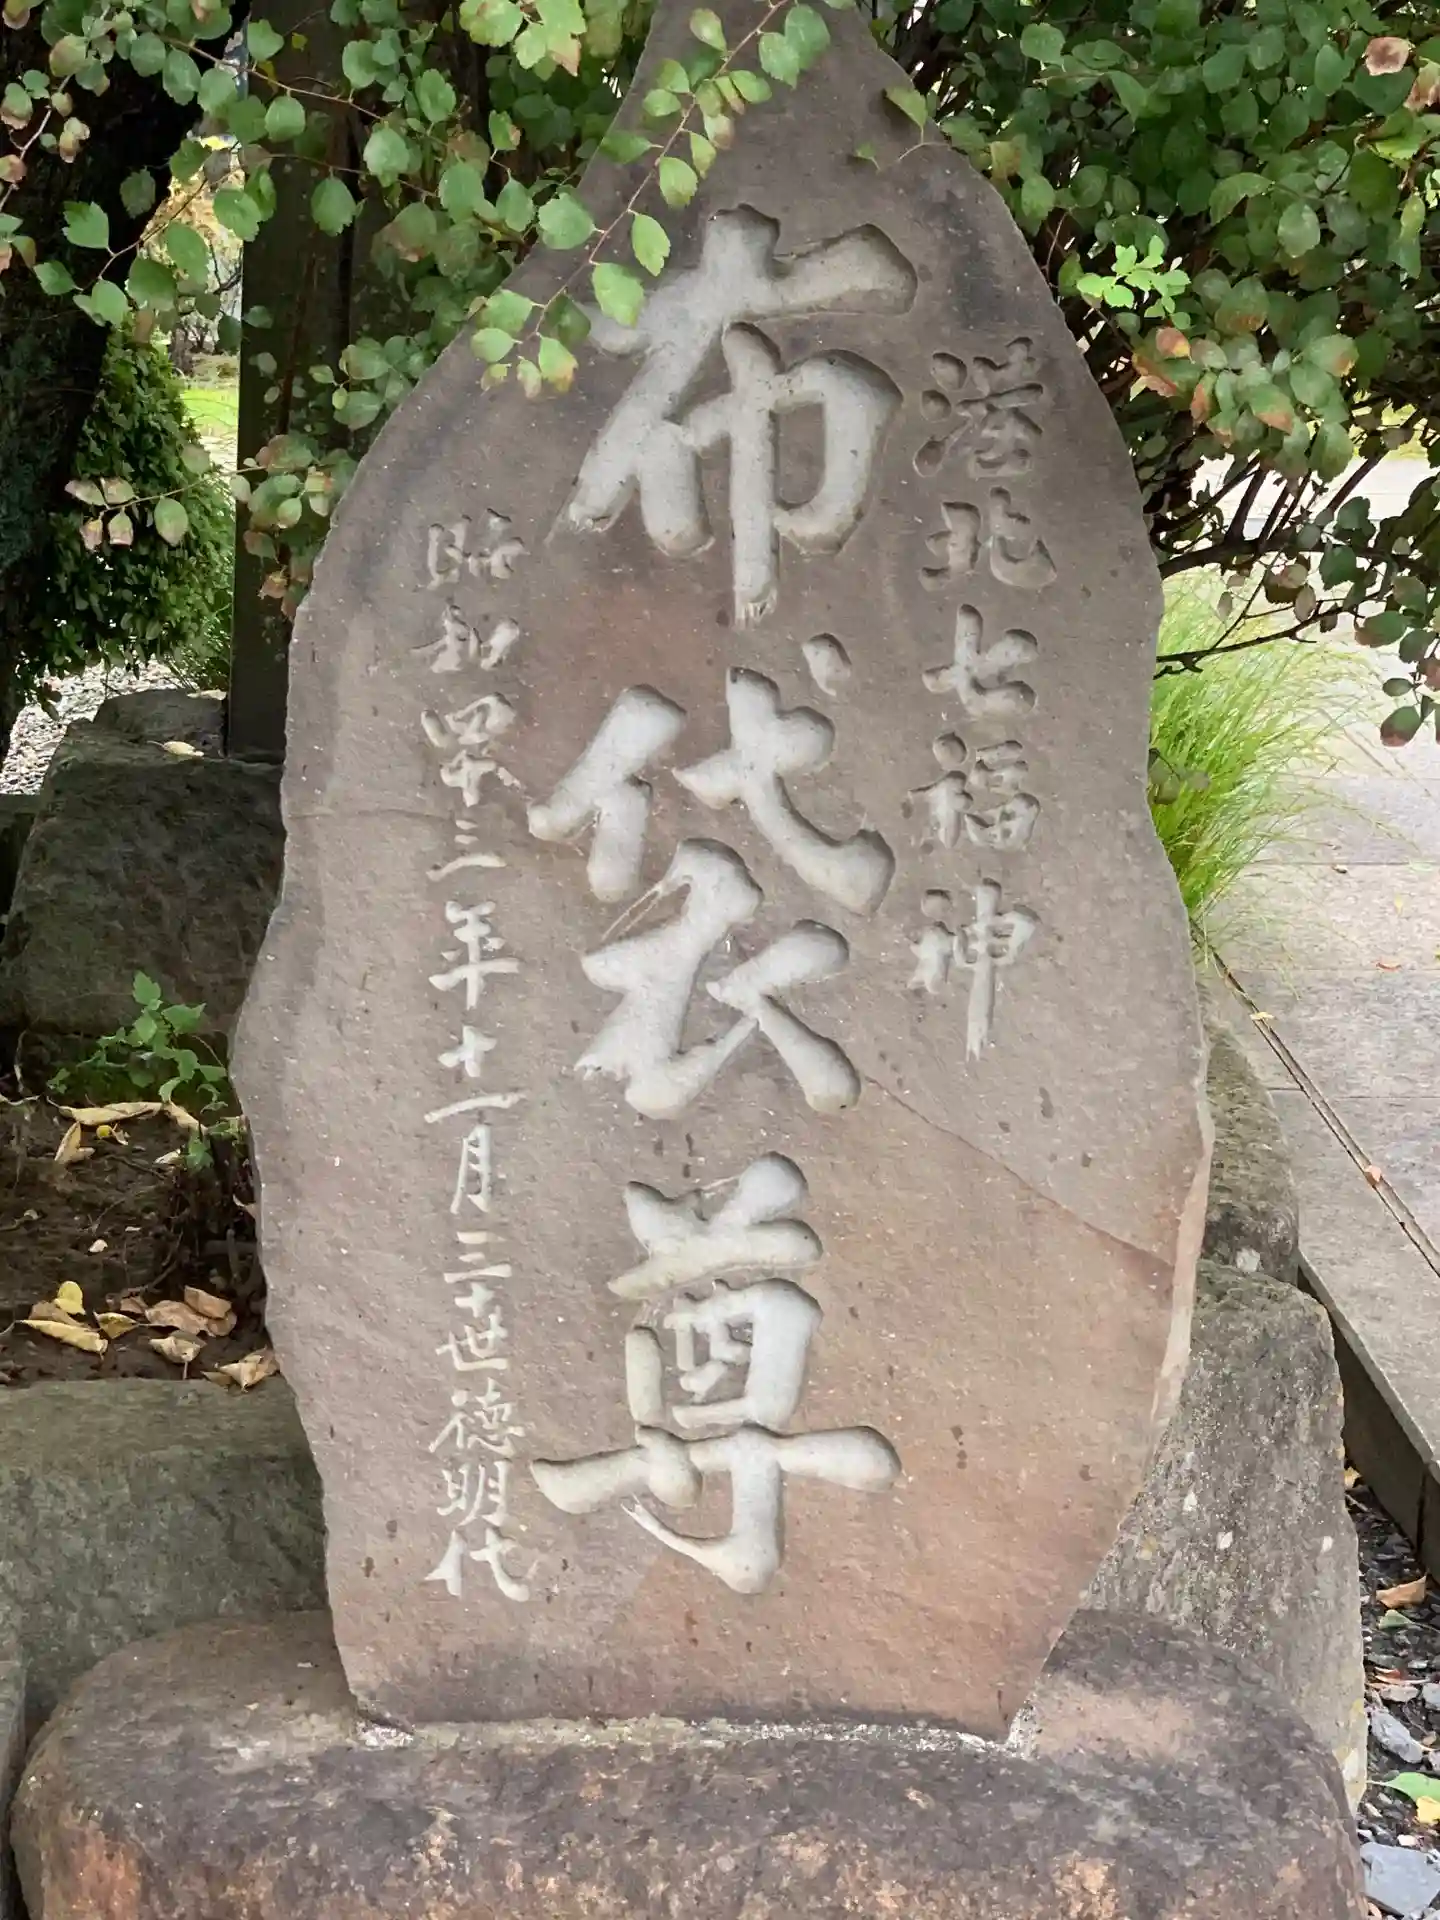 港北七福神
布袋尊
昭和四十三年十一月三十世徳明代